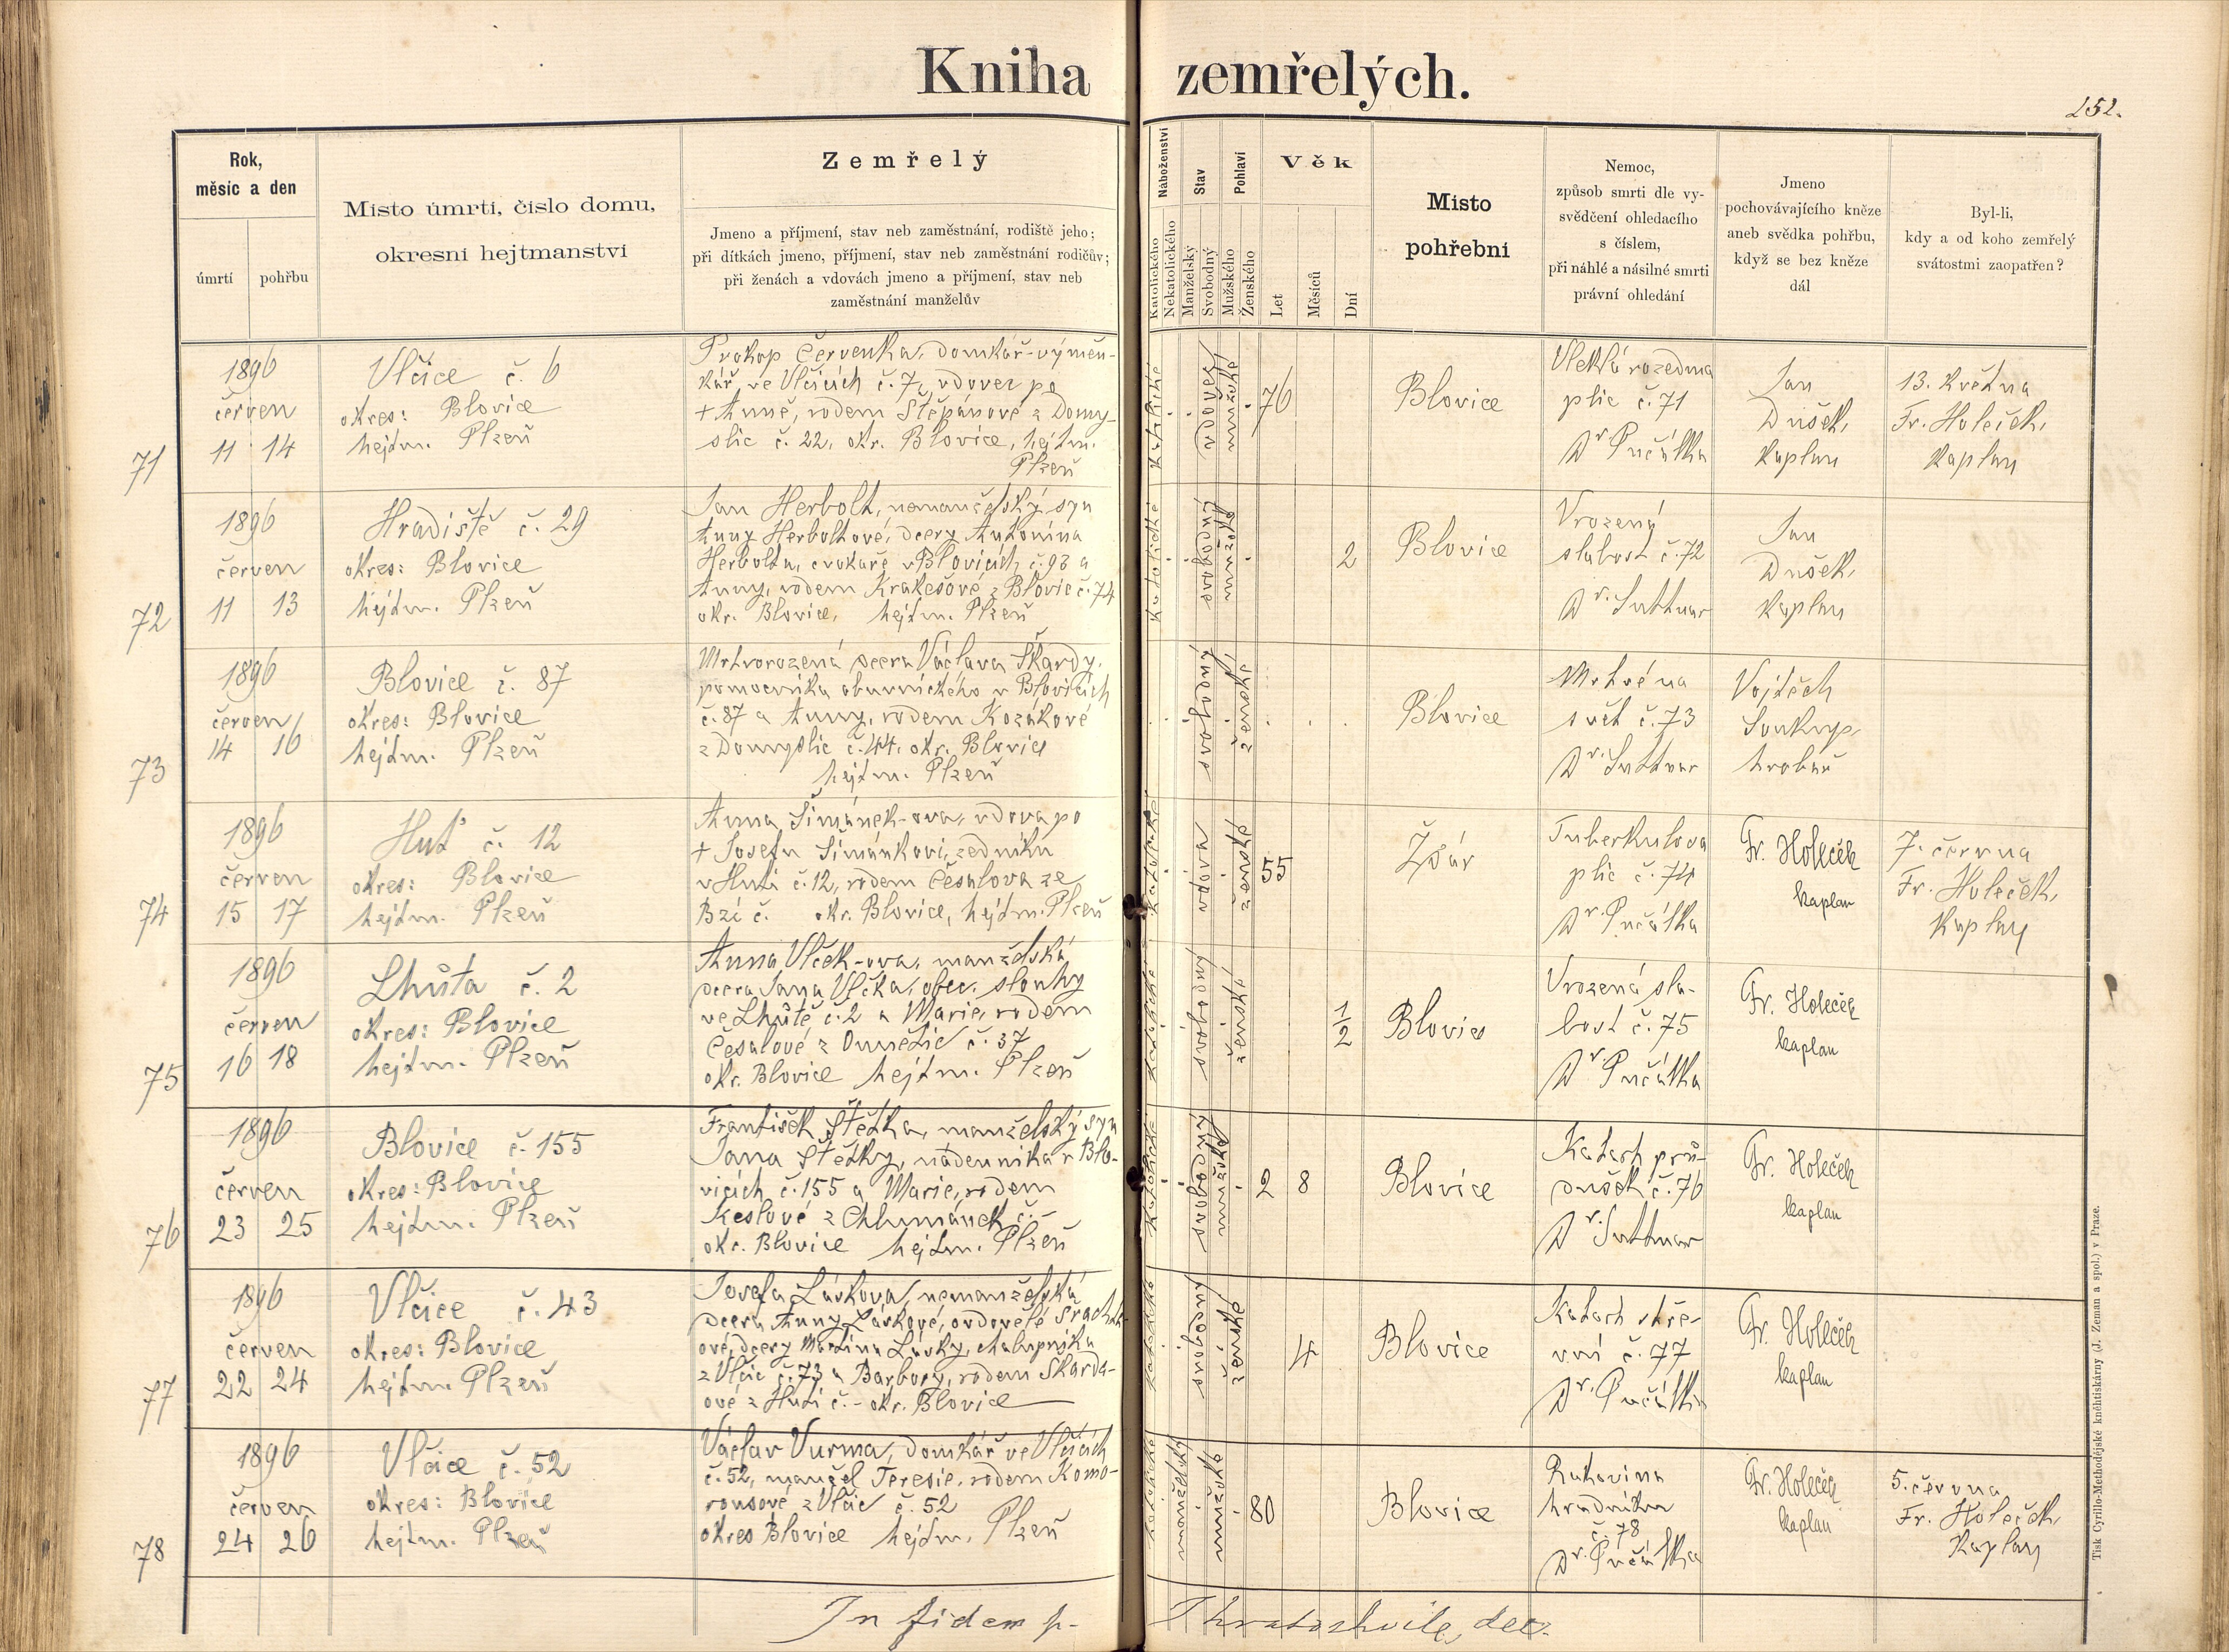 Kniha zemřelých.
152.
Rok,
měsíc a den
úmrtí pohřbu
Místo úmrtí, číslo domu,
okresní hejtmanství
Zemřelý
Jmeno a příjmení, stav neb zaměstnání, rodiště jeho;
při dítkách jmeno, příjmení, stav neb zaměstnání rodičův;
při ženách a vdovách jmeno a příjmení, stav neb
zaměstnání manželův
Náboženství
Katolického
Nekatolického
Stav
Manželský
Svobodný
Pohlaví
Mužského
Ženského
Věk
Let
Měsíců
Dní
Místo
pohřební
Nemoc,
způsob smrti dle vy-
svědčení ohledacího
s číslem,
při náhlé a násilné smrti
právní ohledání
Jmeno
pochovávajícího kněze
aneb svědka pohřbu,
když se bez kněze
dál
Byl-li,
kdy a od koho zemřelý
svátostmi zaopatřen?
71
1896
červen
11 14
Vlčice č. 6
okres: Blovice
hejtm. Plzeň
Prokop Červenka, domkář-výměn-
kář ve Vlčicích č. 7, vdovec po
+ Anně, rodem Štěpánové z Domy-
slic č. 22, okr. Blovice, hejtm.
Plzeň
katolické
vdovec
mužské
76
Blovice
Vleklá rozedma
plic č. 71
Dr Pučálka
Jan
Dušek,
kaplan
13. května
Fr. Holeček,
kaplan
72
1896
červen
11 13
Hradiště č. 29
okres: Blovice
hejtm. Plzeň
Jan Herbolt, nemanželský syn
Anny Herboltové, dcery Antonína
Herbolta, cvokaře v Blovicích č. 93 a
Anny, rodem Krakešové z Blovic č. 74
okr. Blovice, hejtm. Plzeň
katolické
svobodný
mužské
2
Blovice
Vrozená
slabost č. 72
Dr. Suttnar
Jan
Dušek,
kaplan
73
1896
červen
14 16
Blovice č. 87
okres: Blovice
hejtm. Plzeň
Mrtvorozená dcera Václava Škardy,
pomocníka obuvnického v Blovicích
č. 87 a Anny, rodem Kozákové
z Domyslic č. 44. okr. Blovice
hejtm. Plzeň
svobodný
ženské
Blovice
Mrtvé na
svět č. 73
Dr. Suttnar
Vojtěch
Soukup,
hrobař
74
1896
červen
15 17
Huť č. 12
okres: Blovice
hejtm. Plzeň
Anna Šimánek-ova, vdova po
+ Josefu Šimánkovi, zedníku
v Huti č. 12, rodem Česalova ze
Bzí č. okr. Blovice, hejtm. Plzeň
katolické
vdova
ženské
55
Ždár
Tuberkulosa
plic č. 74
Dr. Pučálka
Fr. Holeček
kaplan
7. června
Fr. Holeček,
kaplan
75
1896
červen
16 18
Lhůta č. 2
okres: Blovice
hejtm. Plzeň
Anna Vlček-ova, manželská
dcera Jana Vlčka, obec. slouhy
ve Lhůtě č. 2 a Marie, rodem
Česalové z Ounětic č. 37
okr. Blovice hejtm. Plzeň
katolické
svobodný
ženské
1/2
Blovice
Vrozená sla-
bost č. 75
Dr. Pučálka
Fr. Holeček
kaplan
76
1896
červen
23 25
Blovice č. 155
okres: Blovice
hejtm. Plzeň
František Štětka, manželský syn
Jana Štětky, nádenníka v Blo-
vicích č. 155 a Marie, rodem
Keslové z Chlumánek č. -
okr. Blovice hejtm. Plzeň
katolické
svobodný
mužské
2 8
Blovice
Katarh prů-
dušek č. 76
Dr. Suttnar
Fr. Holeček
kaplan
77
1896
červen
22 24
Vlčice č. 43
okres: Blovice
hejtm. Plzeň
Josefa Lávkova, nemanželská
dcera Anny Lávkové, ovdovělé
ové, dcery Martina Lávky, chalupníka
z Vlčic č. 73 a Barbory, rodem Škarda-
ové z Huti č. - okr. Blovice
katolické
svobodný
ženské
4
Blovice
Katarh stře-
vní č. 77
Dr. Pučálka
Fr. Holeček
kaplan
78
1896
červen
24 26
Vlčice č. 52
okres: Blovice
hejtm. Plzeň
Václav Vurma, domkář ve Vlčicích
č. 52, manžel Teresie, rodem Komo-
rousové z Vlčic č. 52
okres Blovice hejtm. Plzeň
katolické
manželský
mužské
80
Blovice
Rakovina
hradníku
č. 78
Dr. Pučálka
Fr. Holeček
kaplan
5. června
Fr. Holeček,
kaplan
In fidem p. dec.
Tisk Cyrillo-Methodějské kněhtiskárny (J. Zeman a spol.) v Praze.